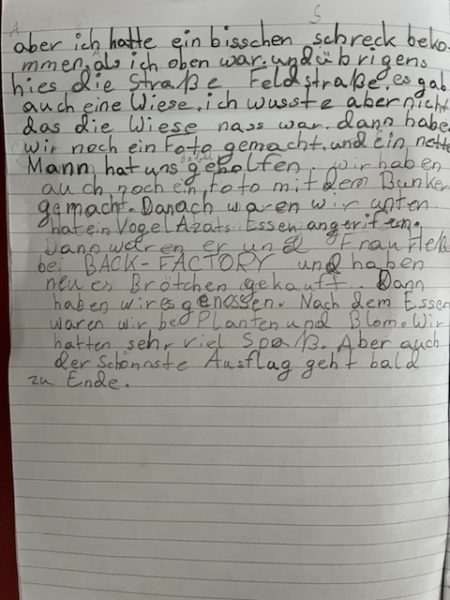 A
S
aber ich hatte ein bisschen schreck beko-
mmen, als ich oben war. und übrigens
hies die Straße Feldstraße. es gab
auch eine Wiese. ich wusste aber nicht
das die Wiese nass war. dann habe
wir noch ein Foto gemacht. und ein nette
Mann hat uns geholfen. wir haben
auch noch ein foto mit dem Bunker
gemacht. Danach waren wir unten
hat ein Vogel Azats Essen angeriten.
Dann waren er und Frau
bei BACK-FACTORY und haben
neues Brötchen gekauft. Dann
haben wir es genossen. Nach dem Essen
waren wir bei Planten und Blom. Wir
hatten sehr viel Spaß. Aber auch
der Schönnste Ausflug geht bald
zu Ende.